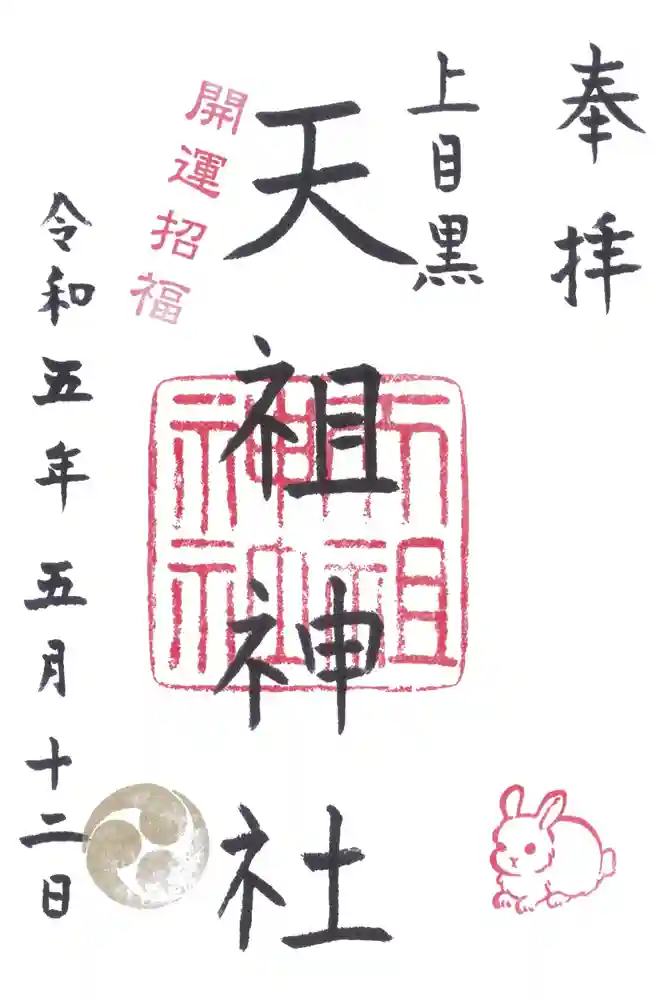 奉拝
上目黒
天祖神社
開運招福
天祖神社
令和五年五月十二日